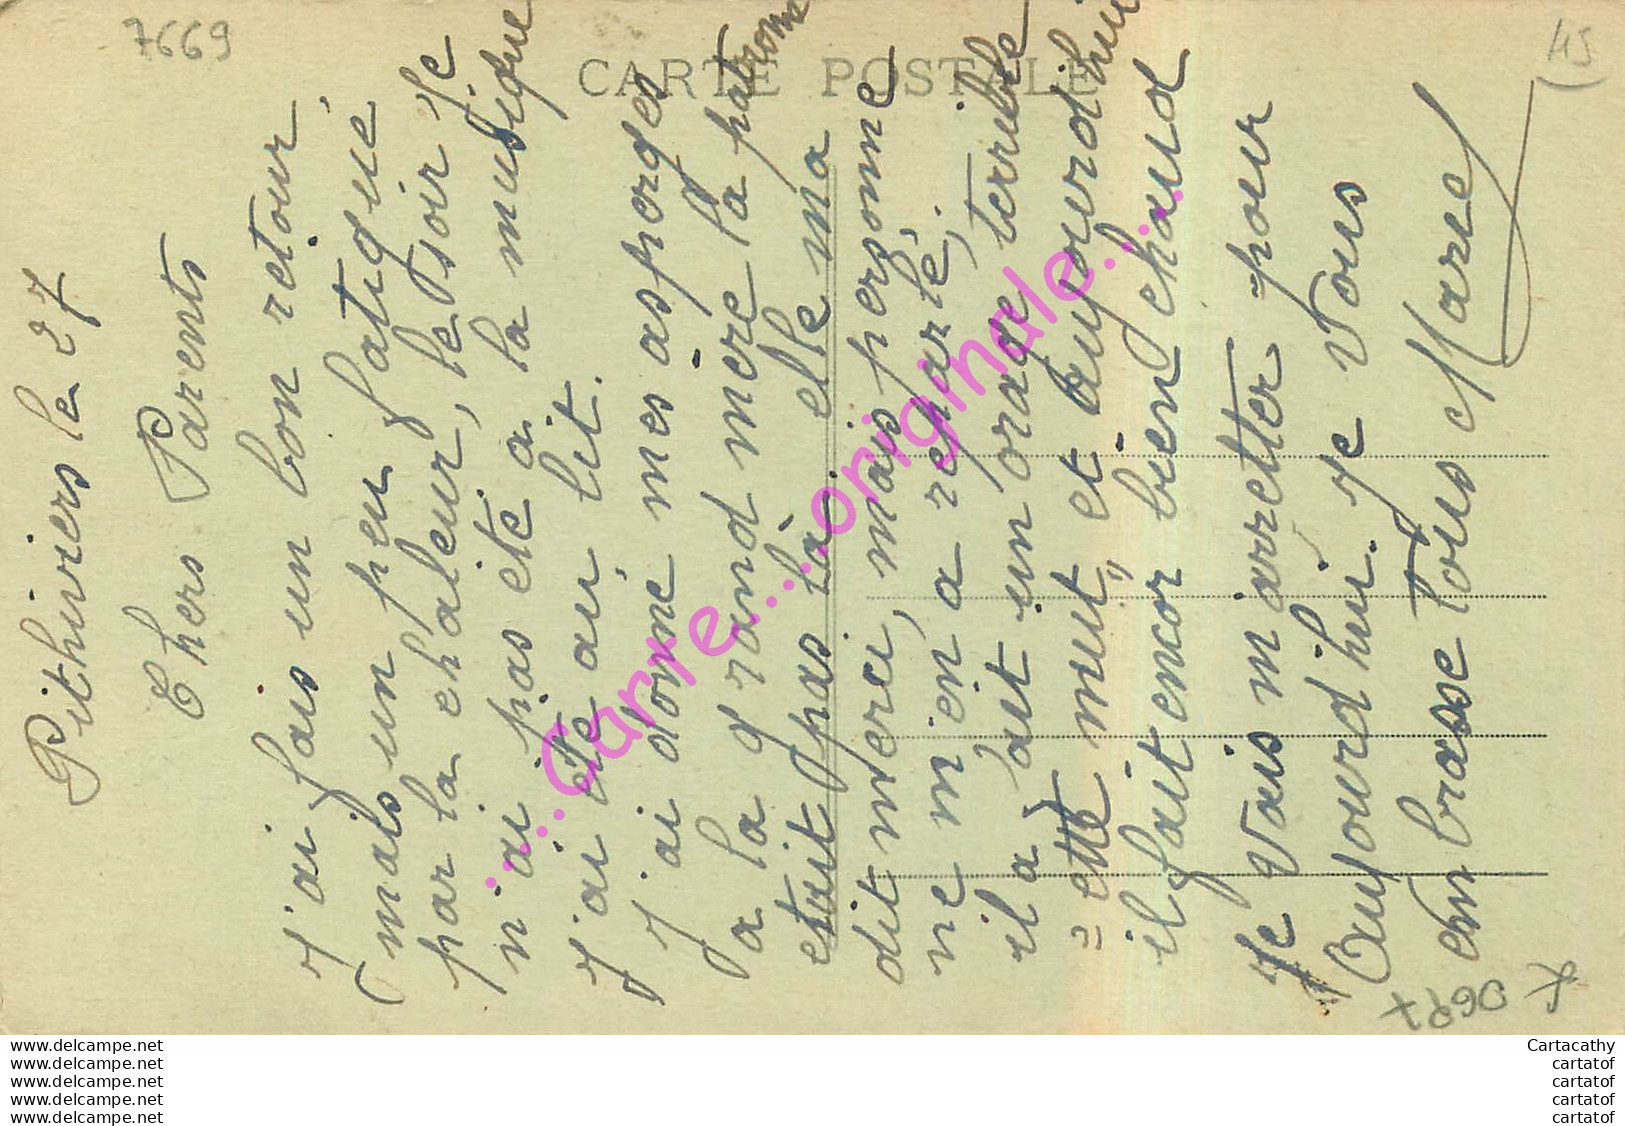 7669
45
CARTE POSTALE
Pithiviers le 27
Chers Parents
J'ai fais un bon retour,
mais un peu fatigué
par la chaleur, le soir je
n'ai pas été a la musique
j'ai été au lit.
J'ai donné mes asperges
a la grand mere la patronne
etait pas là elle m'a
dit merci, mais personne
ne m'en a reparlé,
il a fait un orage terrible
cette nuit et aujourd'hui
il fait encor bien chaud
je vais m'arretter pour
aujourd'hui. Je vous
embrasse tous Marcel
...Carre.....originale.....
www.delcampe.net
www.delcampe.net
www.delcampe.net
www.delcampe.net
www.delcampe.net
Cartacathy
cartatof
cartatof
cartatof
cartatof